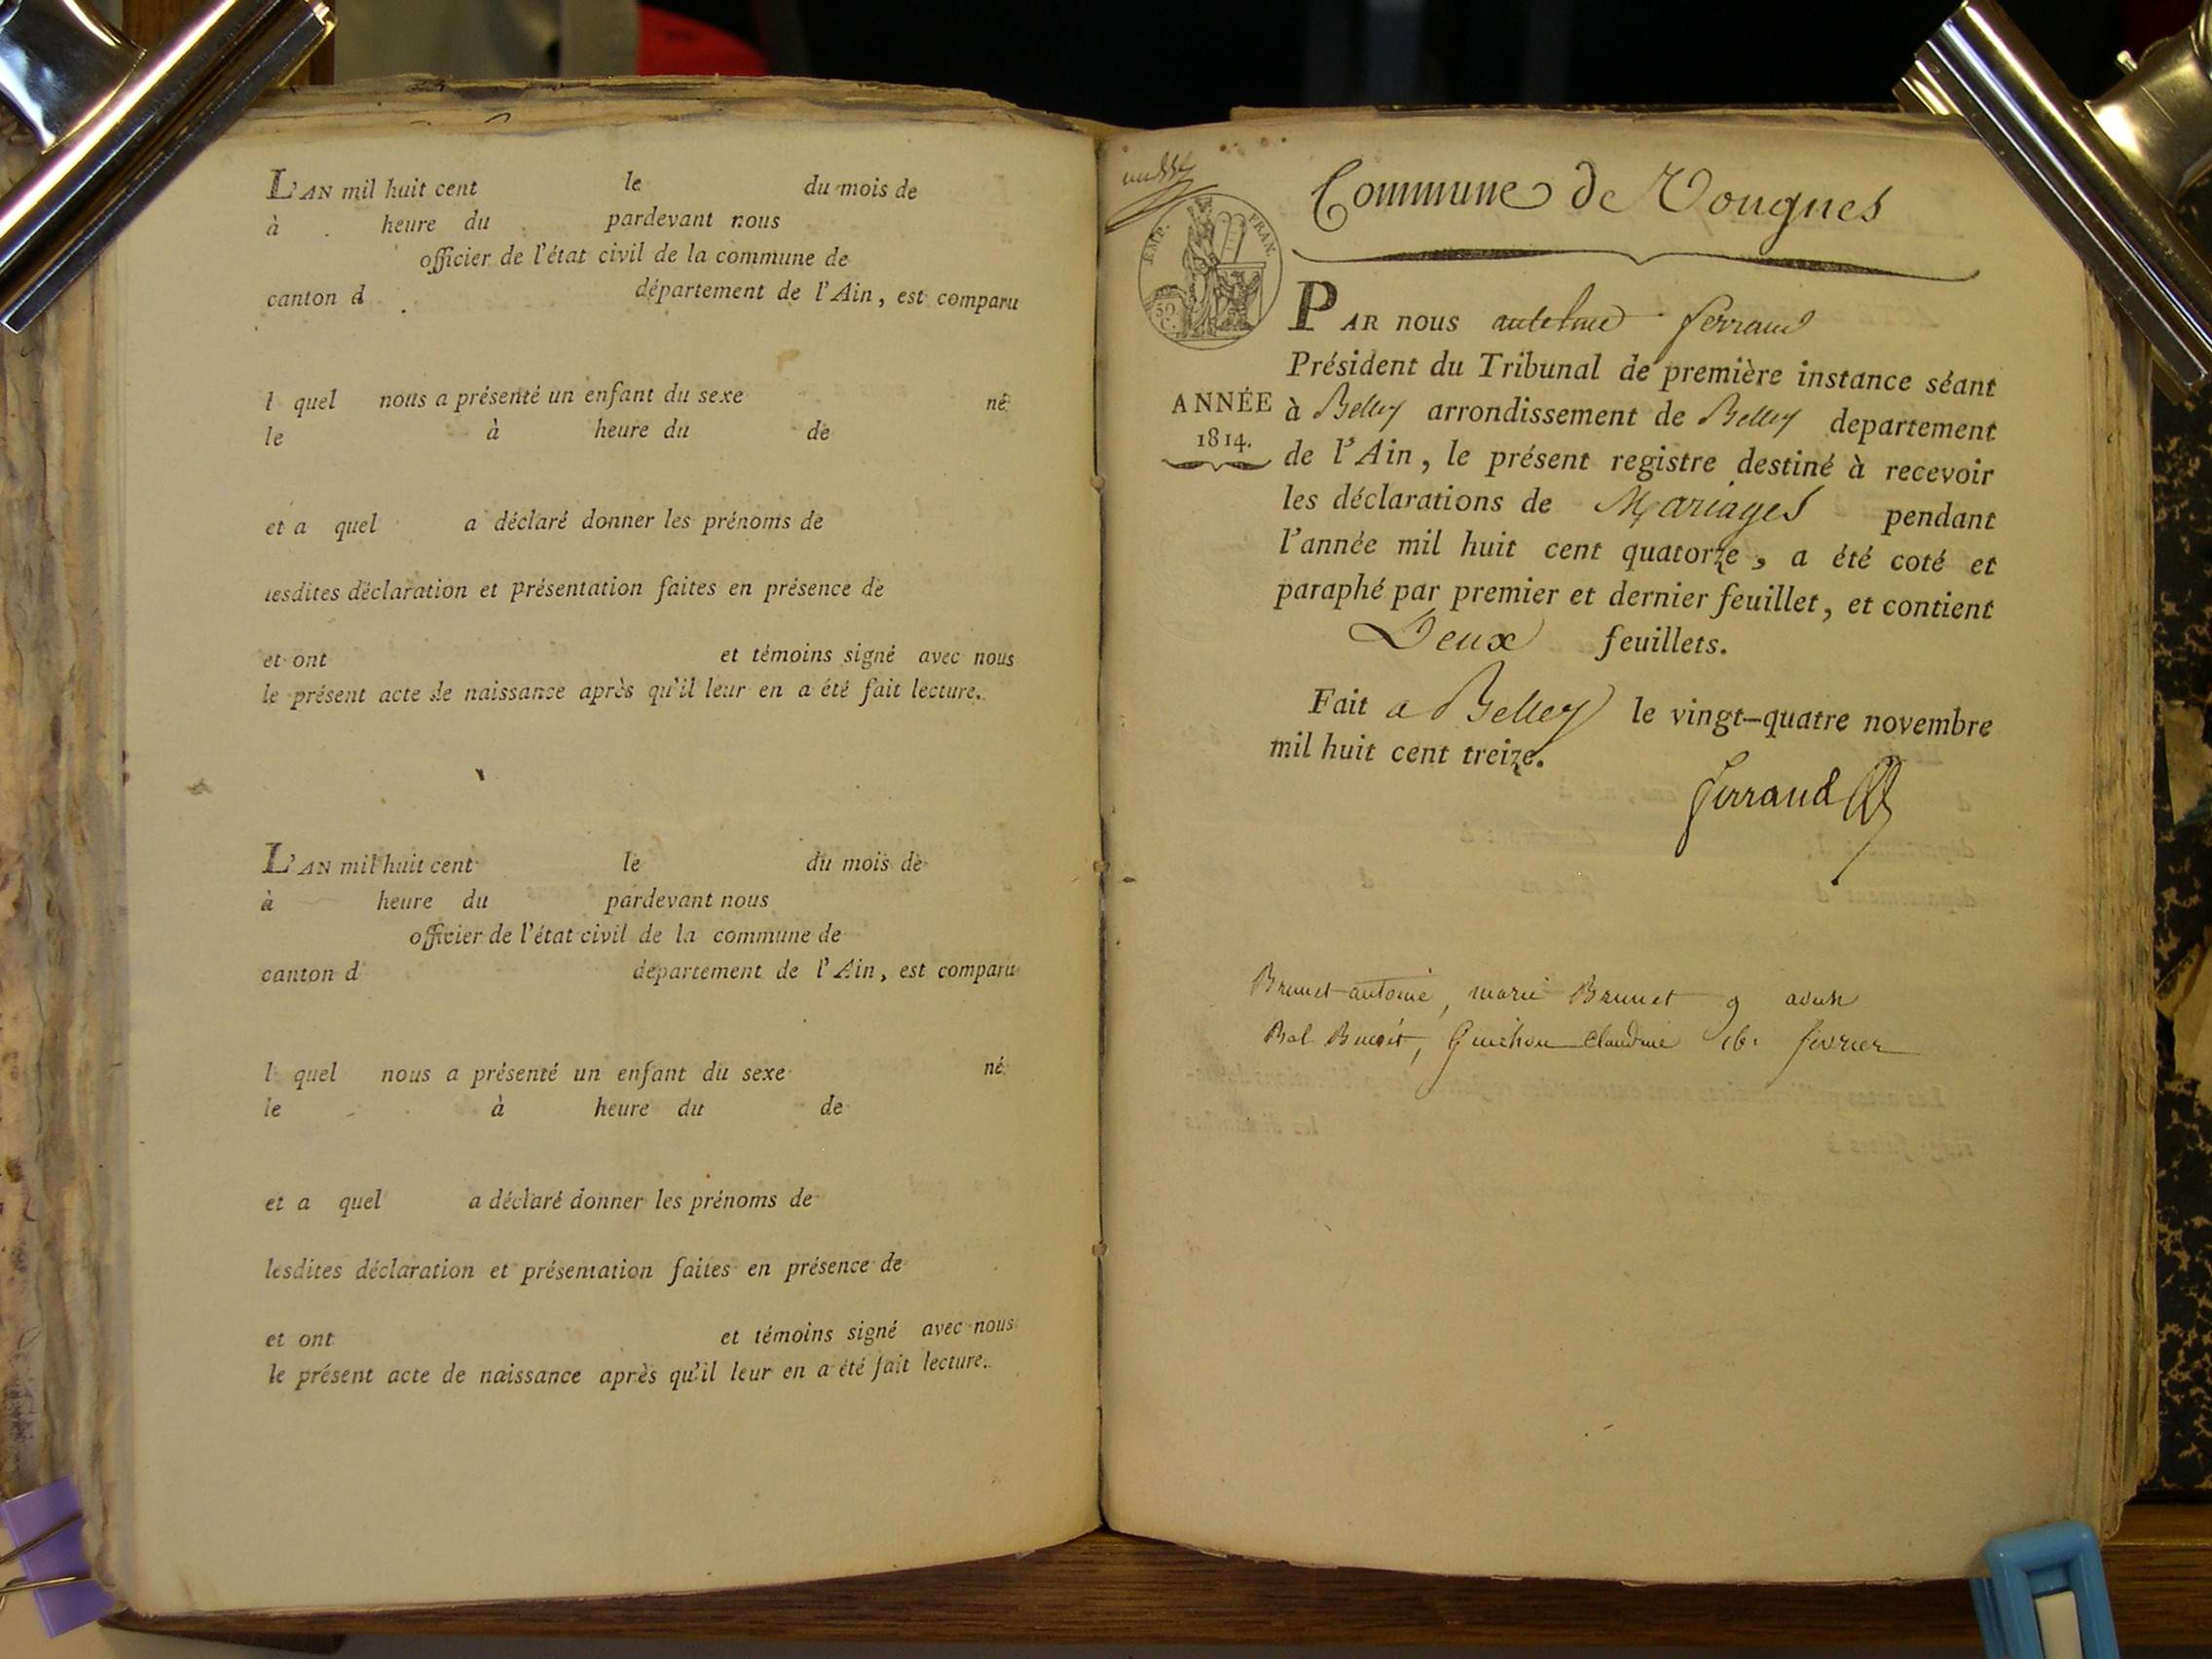 L'AN mil huit cent le du mois de
à heure du pardevant nous
officier de l'état civil de la commune de
canton d département de l'Ain, est comparu
l quel nous a présenté un enfant du sexe né
le à heure du de
et a quel a déclaré donner les prénoms de
lesdites déclaration et présentation faites en présence de
et ont et témoins signé avec nous
le présent acte de naissance après qu'il leur en a été fait lecture.
L'AN mil huit cent le du mois de
à heure du pardevant nous
officier de l'état civil de la commune de
canton d département de l'Ain, est comparu
l quel nous a présenté un enfant du sexe né
le à heure du de
et a quel a déclaré donner les prénoms de
lesdites déclaration et présentation faites en présence de
et ont et témoins signé avec nous
le présent acte de naissance après qu'il leur en a été fait lecture.
Commune de Vongnes
EMP. FRAN.
50 C.
PAR nous antelme ferrand
Président du Tribunal de première instance séant
ANNÉE
1814.
à Belley arrondissement de Belley departement
de l'Ain, le présent registre destiné à recevoir
les déclarations de Mariages pendant
l'année mil huit cent quatorze, a été coté et
paraphé par premier et dernier feuillet, et contient
Deux feuillets.
Fait a Belley le vingt-quatre novembre
mil huit cent treize.
ferrand
Brunet antoine, marie Brunet 9 
Bal Benoit, Guichon Claudine 16. fevrier